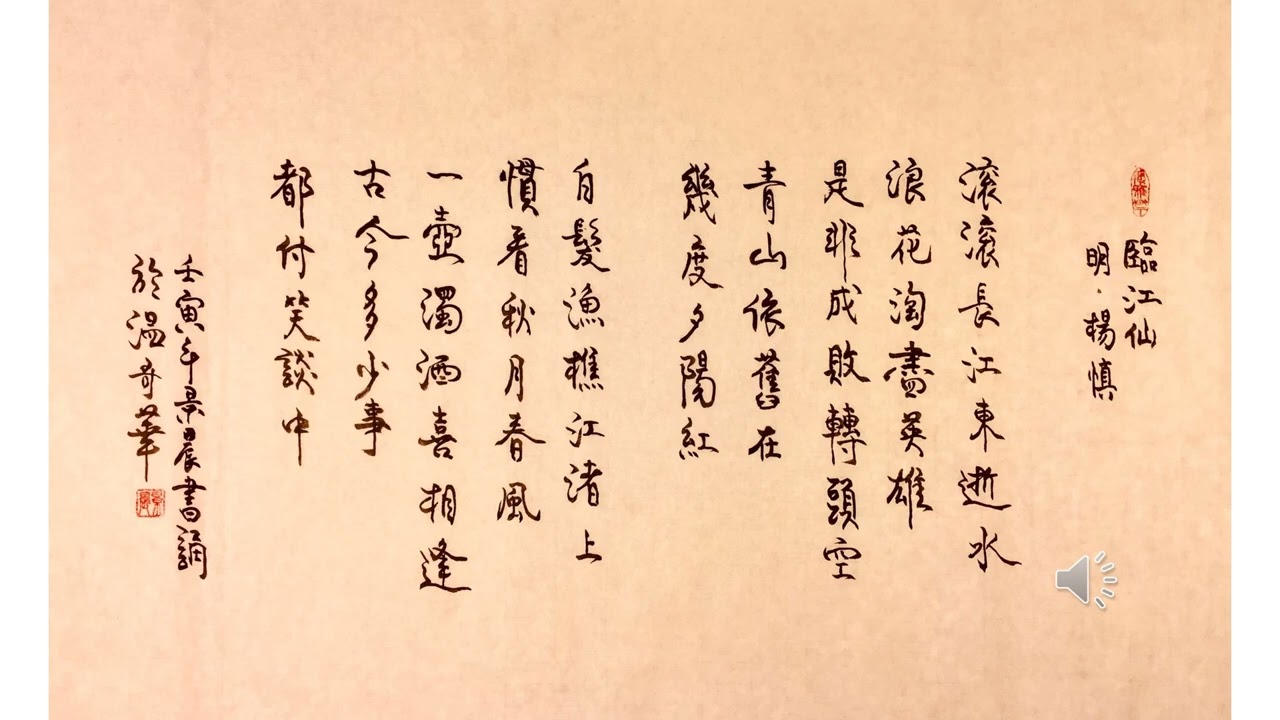 臨江仙
明·楊慎
滚滚長江東逝水
浪花淘盡英雄
是非成敗轉頭空
青山依舊在
幾度夕陽紅
白髮漁樵江渚上
慣看秋月春風
一壺濁酒喜相逢
古今多少事
都付笑談中
壬寅年景晨書誦
於温哥華